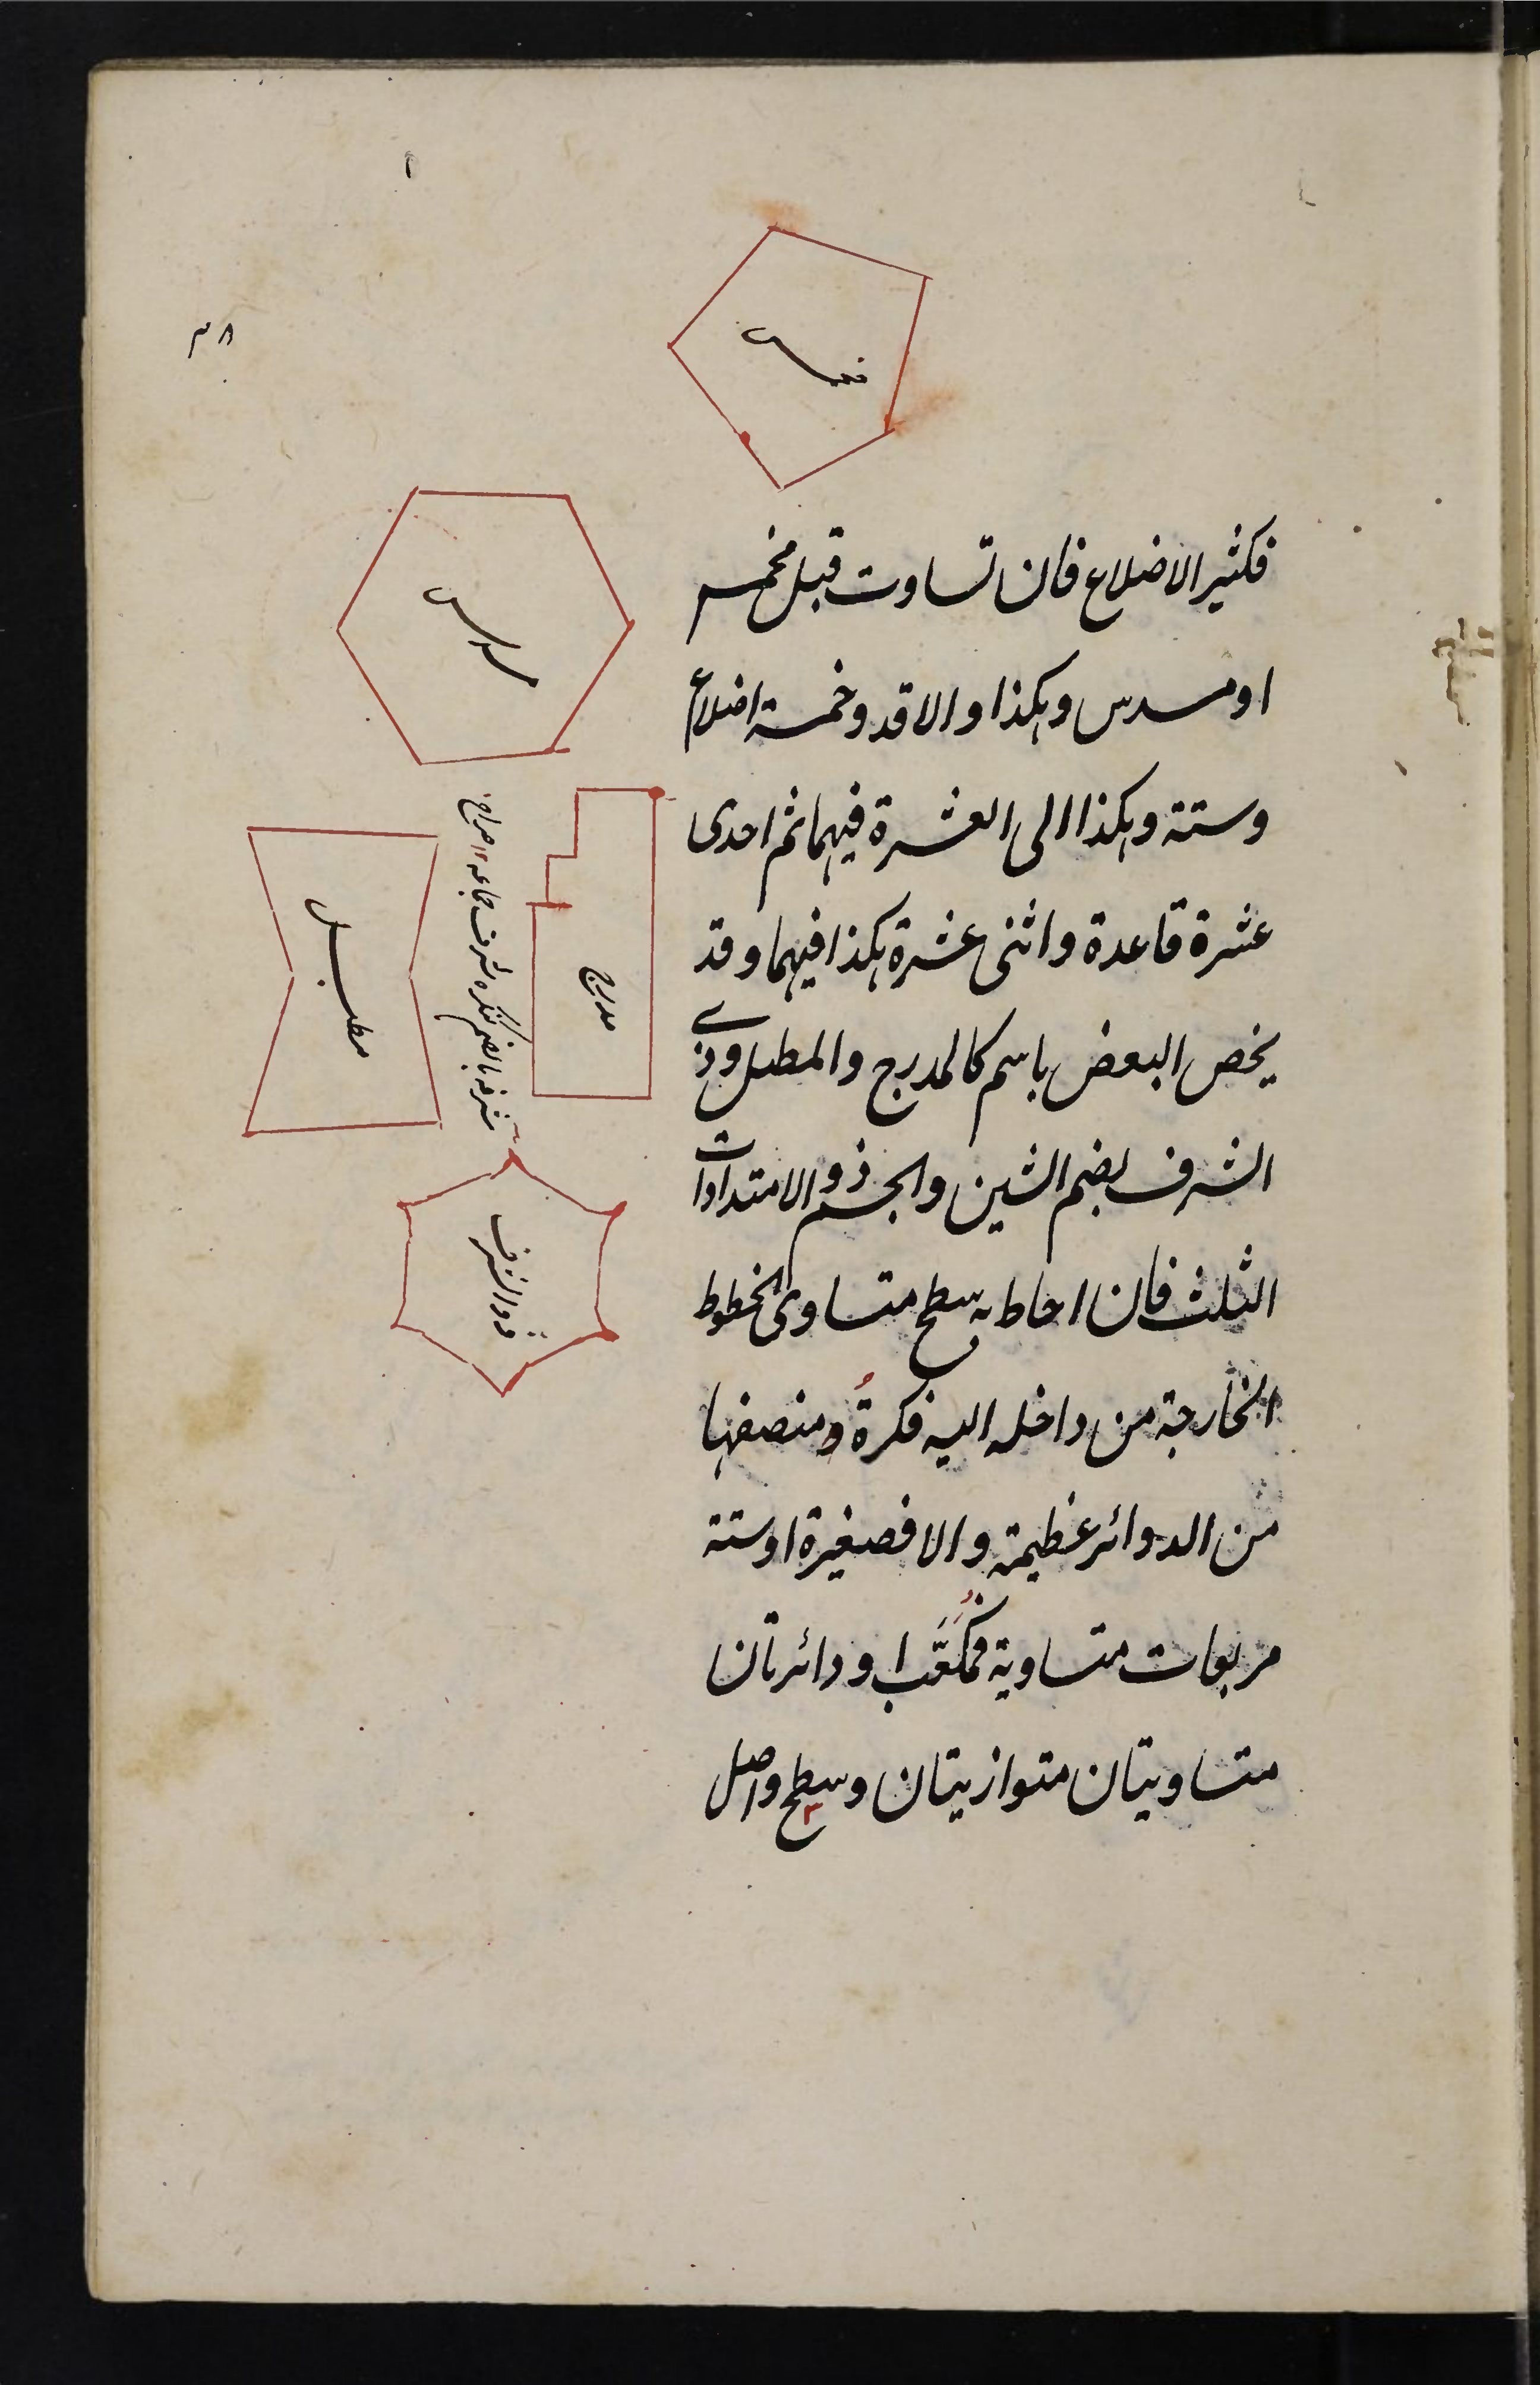 ٣٨
مخمس
مسدس
فكثير الاضلاع فان تساوت قيل مخمس
او مسدس وهكذا والا فذو خمسة اضلاع
وستة وهكذا الى العشرة فيهما ثم احدى
عشرة قاعدة واثنى عشرة هكذا فيهما وقد
يخص البعض باسم كالمدرج والمطبل وذى
الشرف بضم الشين والجسم ذو الامتدادات
الثلث فان احاط به سطح متساوى الخطوط
الخارجة من داخله اليه فكرةُ ومنصفها
من الدوائر عظيمة والا فصغيرة او ستة
مربعات متساوية فمُكَعَّب او دائرتان
متساويتان متوازيتان وسطح واصل
مدرج
مطبل
شرفه بالضم كنكره شرف جماعه ١٢ صراح
ذو الشرف